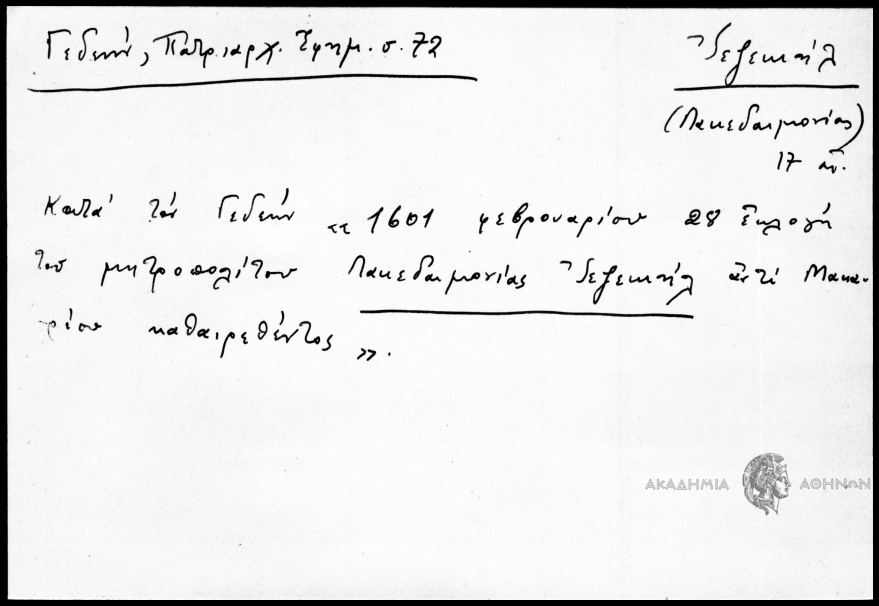 Γεδεών, Πατριαρχ. Ἐφημ. σ. 72
Ἰεζεκιήλ
(Λακεδαιμονίας)
17 αἰ.
Κατά τόν Γεδεών «1601 φεβρουαρίου 28 ἐκλογή
τοῦ μητροπολίτου Λακεδαιμονίας Ἰεζεκιήλ ἀντί Μακα-
ρίου καθαιρεθέντος».
ΑΚΑΔΗΜΙΑ ΑΘΗΝΩΝ